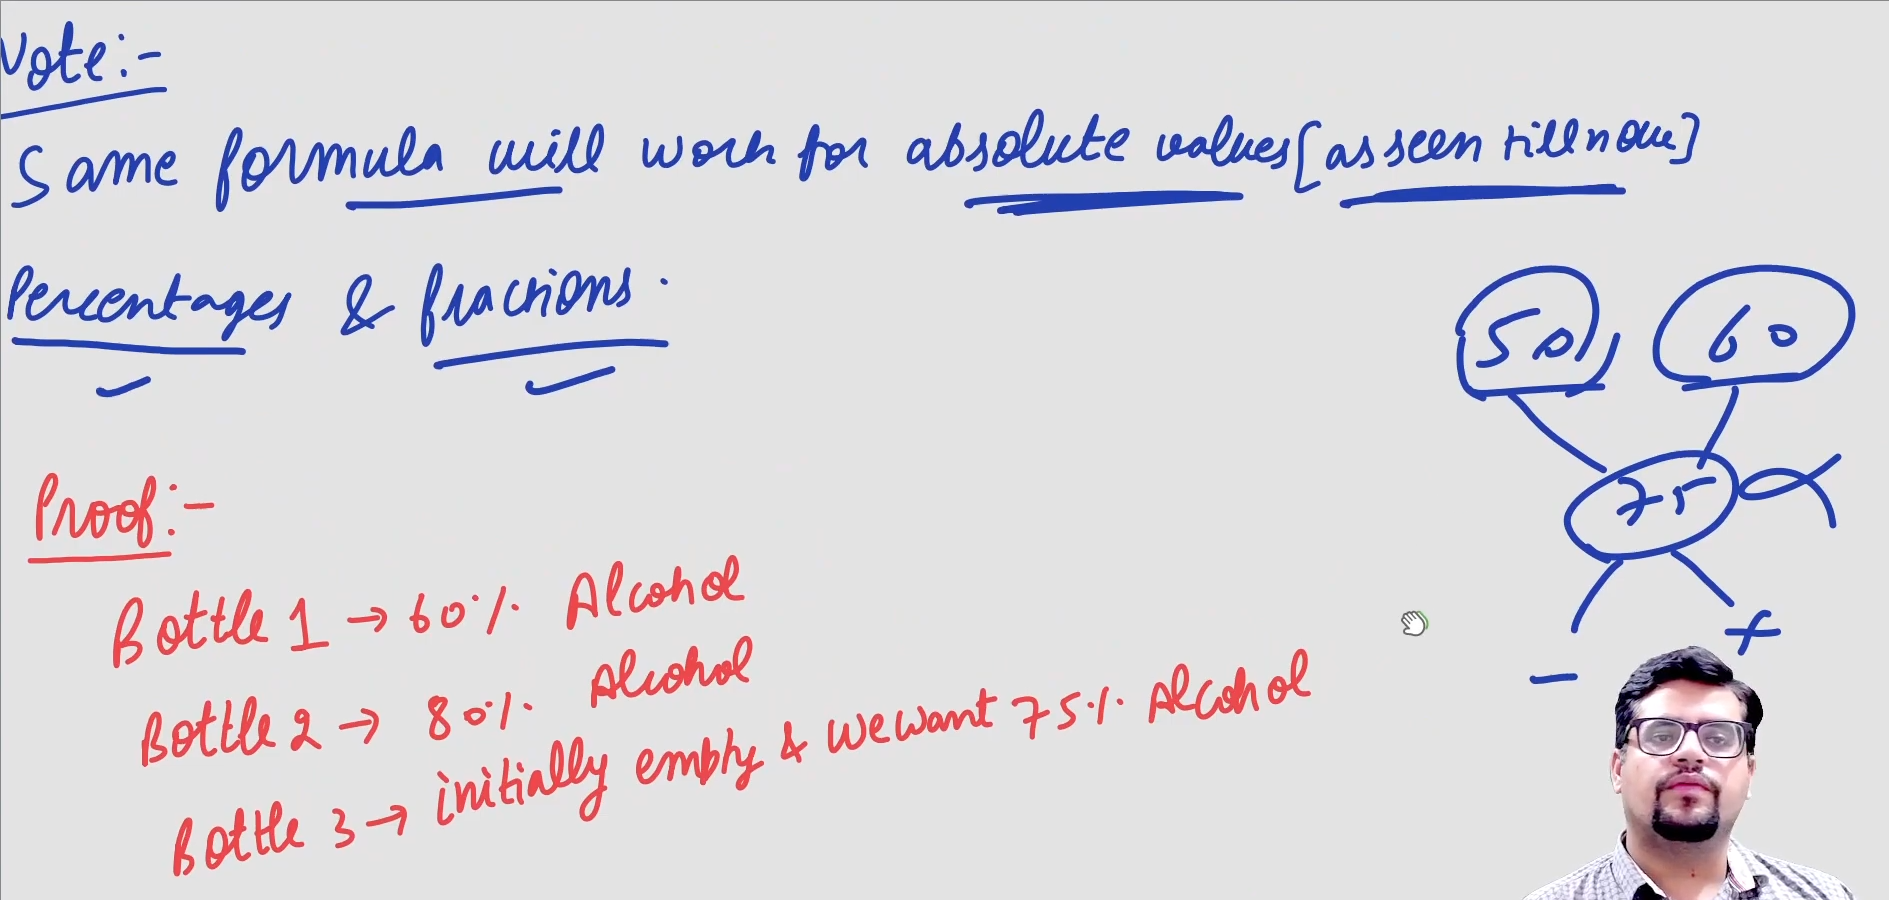 Note:-
Same formula will work for absolute values [as seen till now]
Percentages & fractions.
50, 60
75
- +
Proof:-
Bottle 1 → 60% Alcohol
Bottle 2 → 80% Alcohol
Bottle 3 → initially empty & we want 75% Alcohol